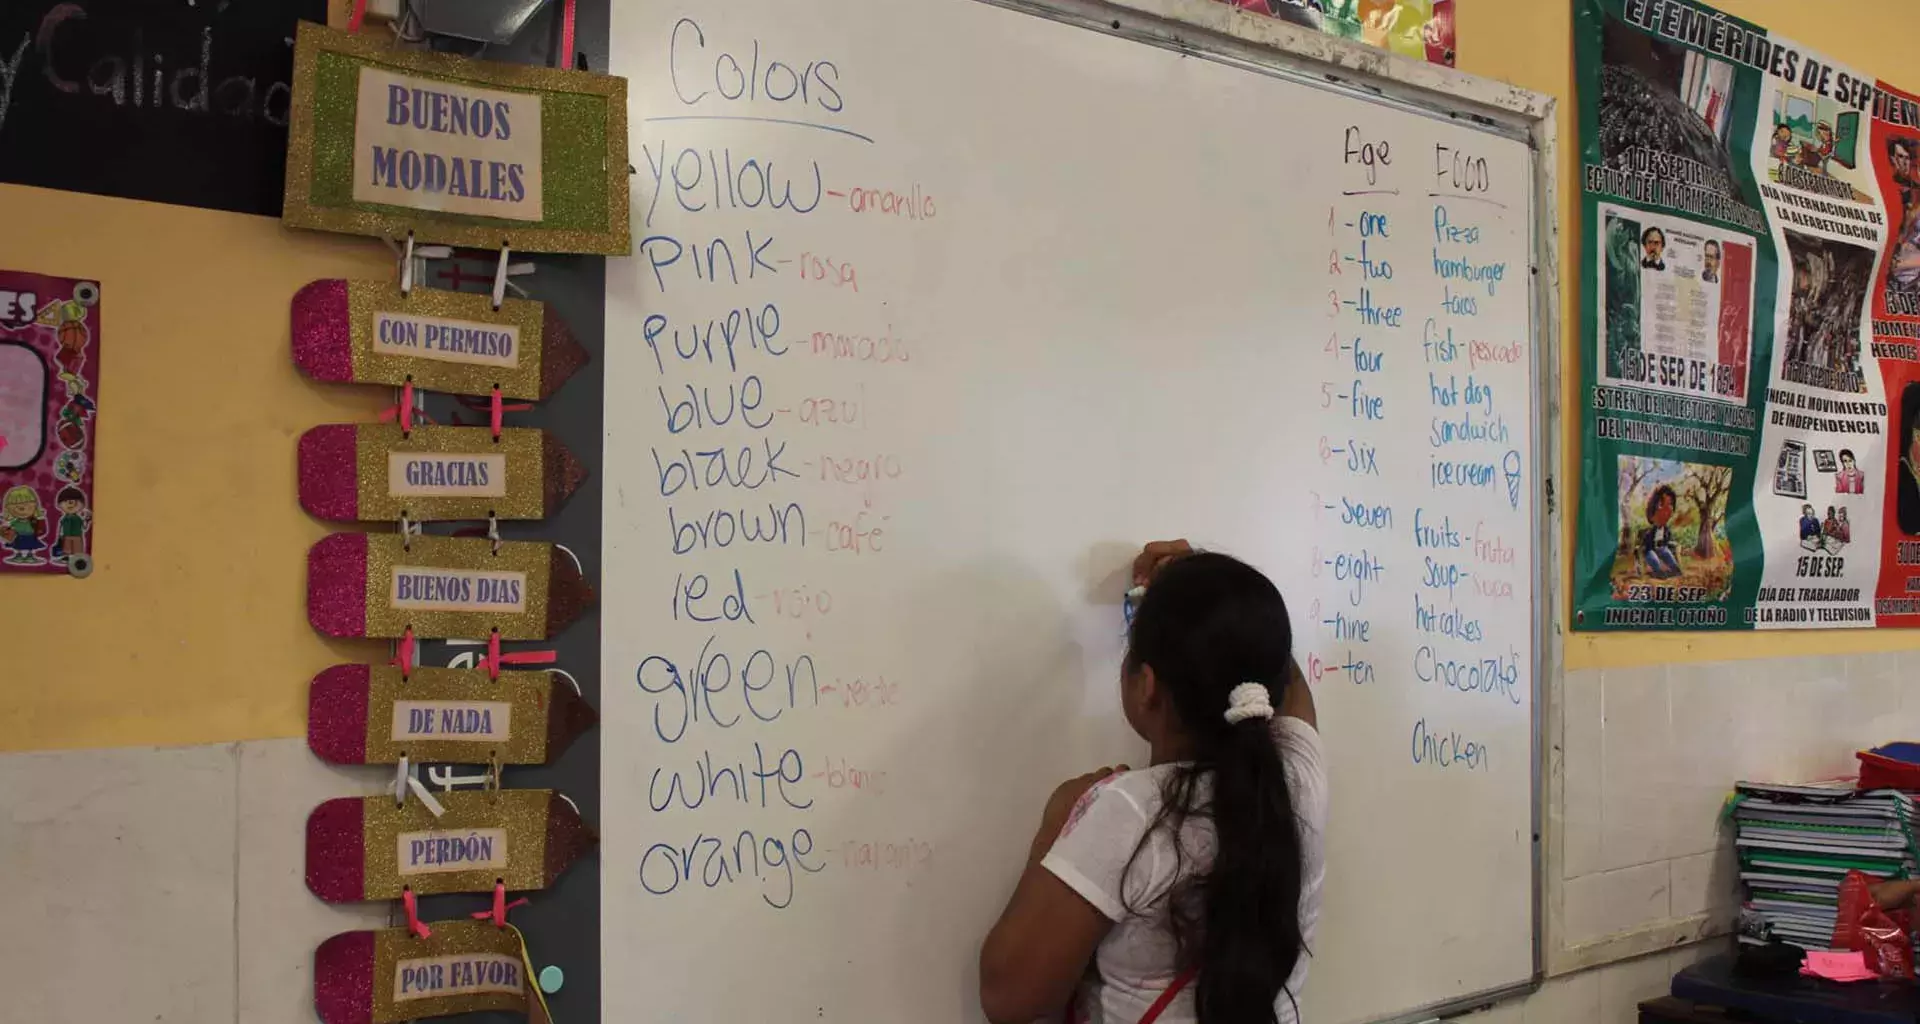 y Calidad
ES
BUENOS
MODALES
CON PERMISO
GRACIAS
BUENOS DIAS
DE NADA
PERDÓN
POR FAVOR
Colors
yellow-amarillo
Pink-rosa
Purple-morado
blue-azul
black-negro
brown-café
red-rojo
green-verde
white-blanc
orange-naranja
Age
1-one
2-two
3-three
4-four
5-five
6-six
7-seven
8-eight
9-nine
10-ten
FOOD
Pizza
hamburger
tacos
fish-pescado
hot dog
sandwich
ice cream
fruits-fruta
soup-sopa
hot cakes
Chocolate
Chicken
EFEMÉRIDES DE SEPTIEM
1 DE SEPTIEMBRE
ECTURA DEL INFORME PRESIDENCIAL
15 DE SEP. DE 1854
ESTRENO DE LA LECTURA Y MÚSICA
DEL HIMNO NACIONAL MEXICANO
23 DE SEP
INICIA EL OTOÑO
8 DE SEPTIEMBRE
DÍA INTERNACIONAL DE
LA ALFABETIZACIÓN
16 DE SEP. DE 1810
INICIA EL MOVIMIENTO
DE INDEPENDENCIA
15 DE SEP.
DÍA DEL TRABAJADOR
DE LA RADIO Y TELEVISION
13 DE
HOMEN
HÉROES
30 DE